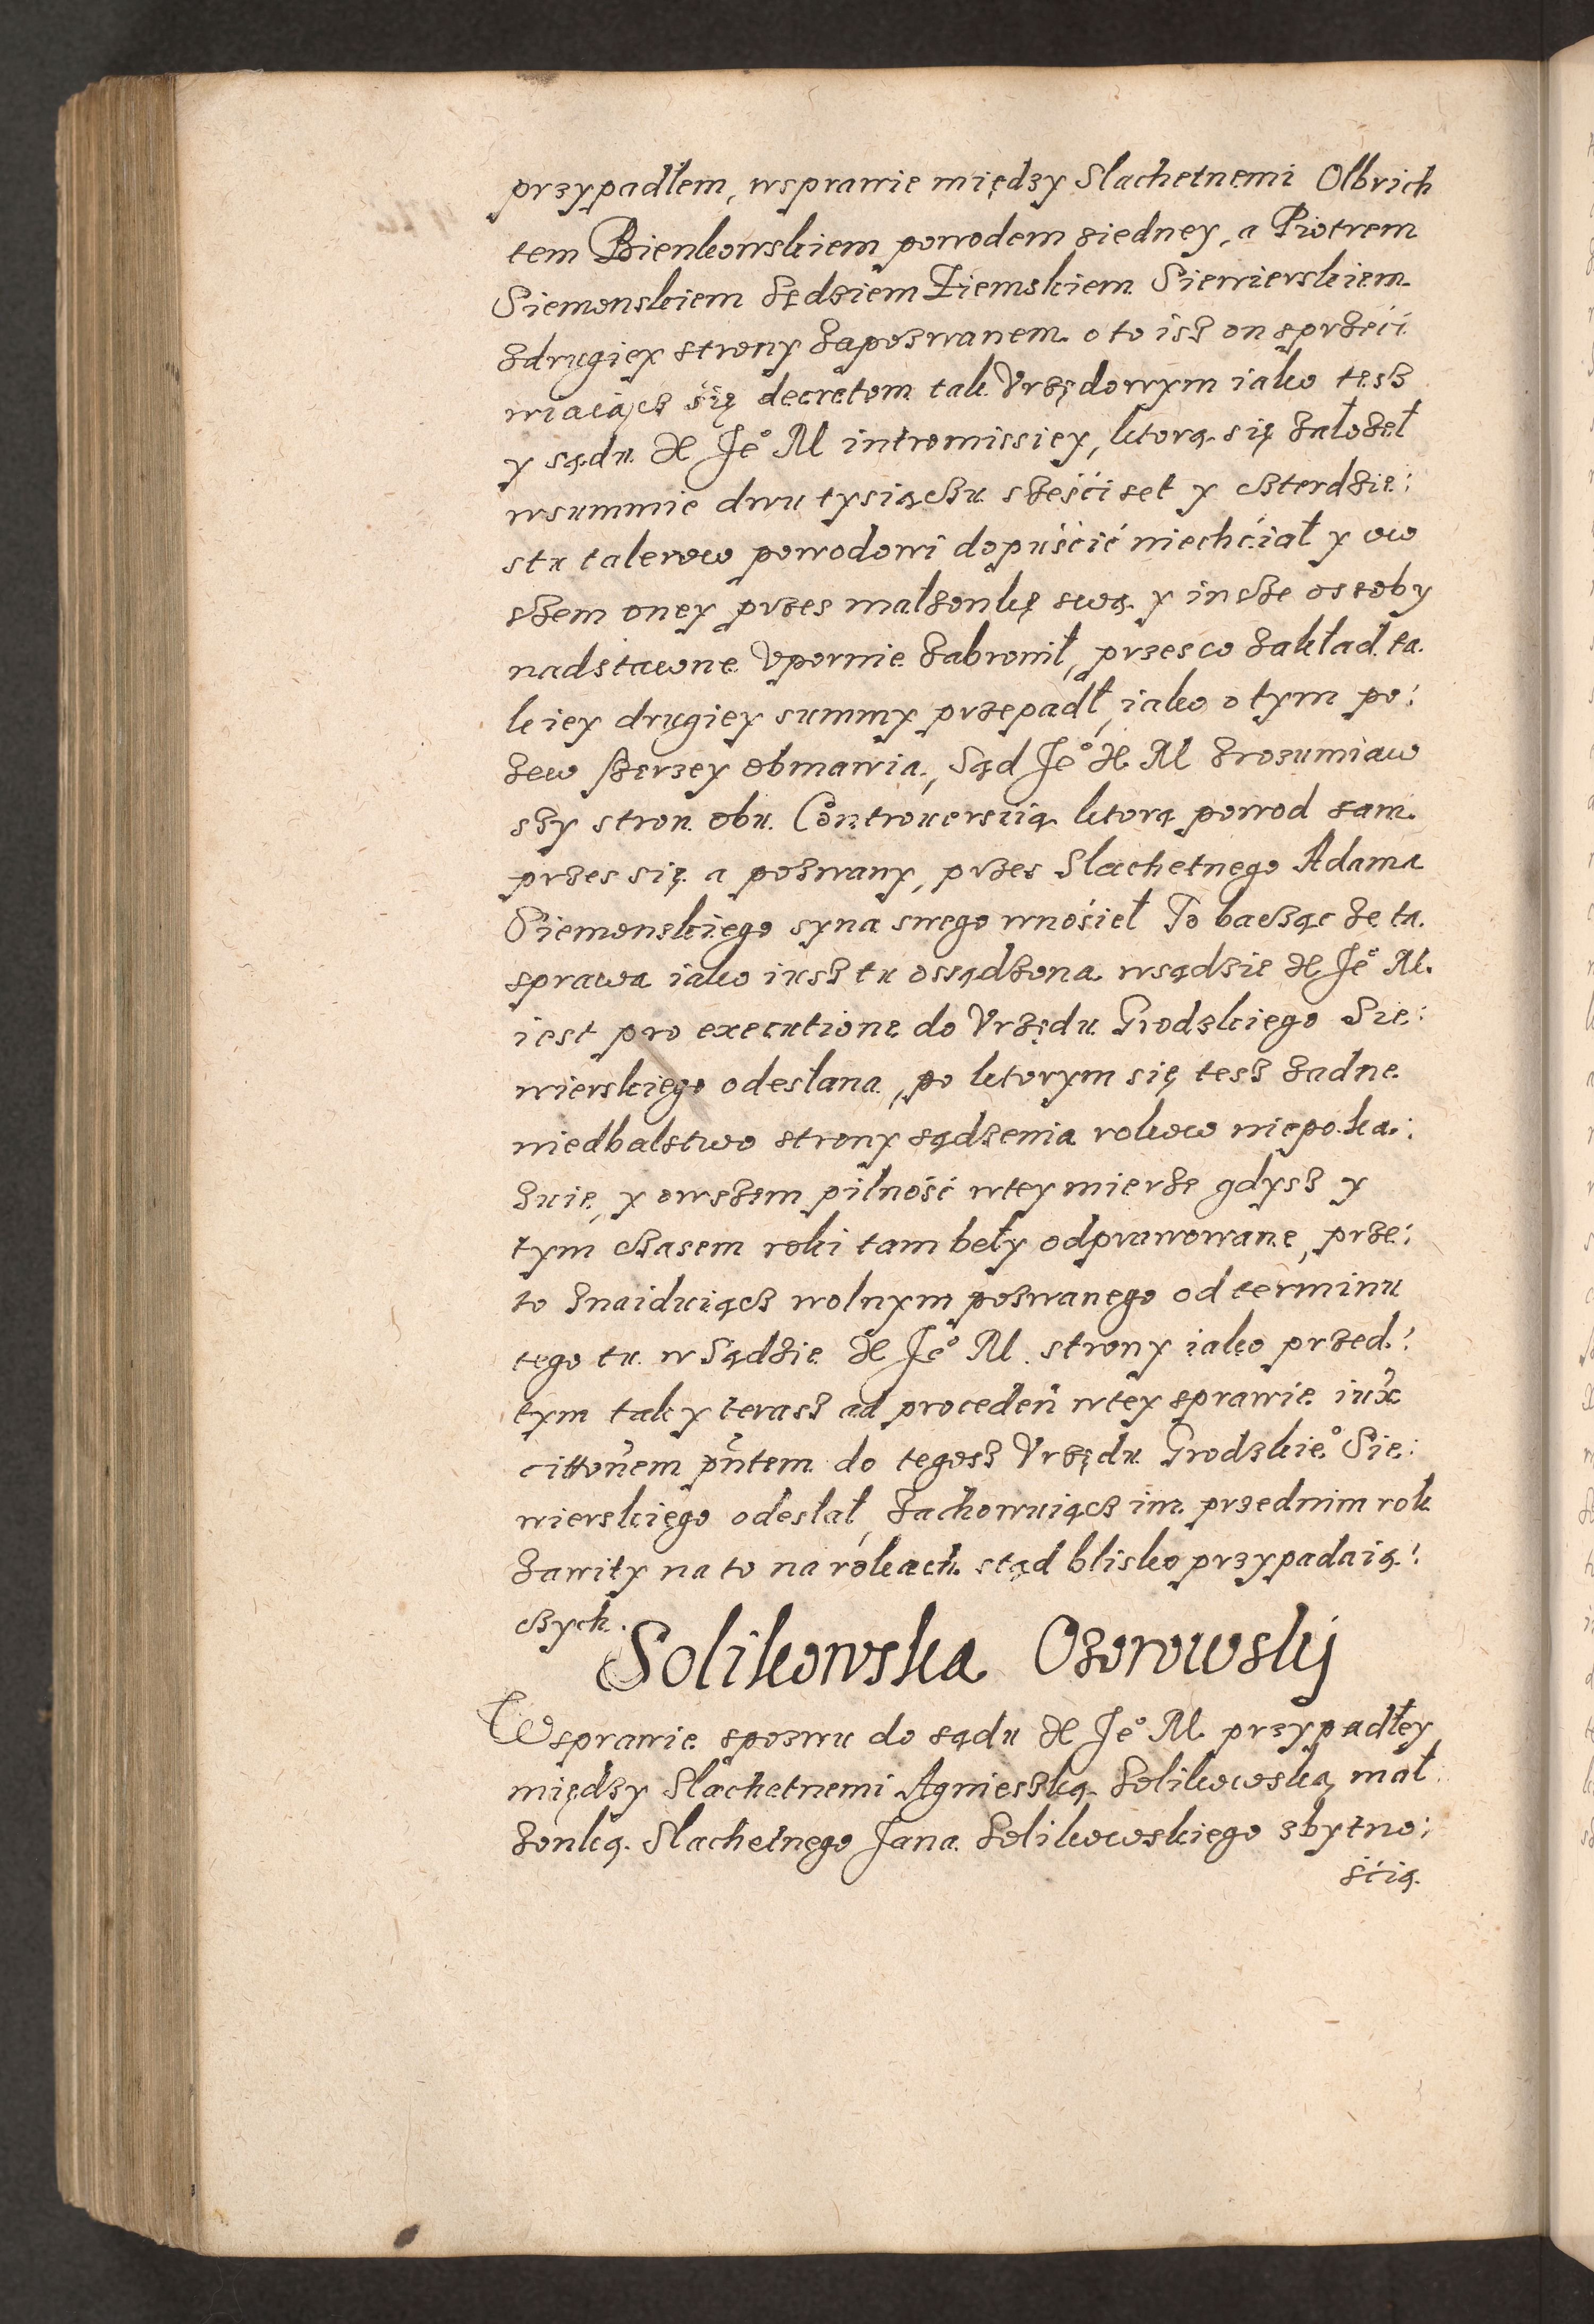 przypadłem, wsprawie między Slachetnemi Olbrich
tem Bienkowskiem powodem ziedney, a Piotrem
Siemonskiem Sędziem Ziemskiem Siewierskiem
zdrugiey strony zapozwanem o to isz on sprzeći
wiaiącz się decretom tak Vrzędowym iako tesz
y sądu X Je° M intromissiey, ktorą się załozeł
wsummie dwu tysiączu szesćiset y czterdzie:
stu talerow powodowi dopuśćić niechćiał y ow
szem oney przes małzonkę swą y insze ossoby
nadstawne Vpornie zabronił, przesco zakład ta
kiey drugiey summy przepadł, iako o tym po:
zew szerzey obmawia, Sąd Je° X M zrozumiaw
szy stron obu Controuersiią ktorą powod sam
przes się a pozwany, przes Slachetnego Adama
Siemonskiego syna swego wnośieł To bacząc ze ta
sprawa iako iusz tu ossądzona wsądzie X Je° M.
iest pro executione do Vrzędu Grodzkiego Sie:
wierskiego odesłana, po ktorym się tesz zadne
niedbalstwo strony sądzenia rokow niepoka:
zuie, y owszem pilność wtey mierze gdysz y
tym czasem roki tam beły odprawowane, prze:
to znaiduiącz wolnym pozwanego od terminu
tego tu w Sądzie X Je° M. strony iako przed:
tym tak y terasz ad proceden̄ wtey sprawie iux̄
citton̄em pn̄tem do tegosz Vrzędu Grodzkie° Sie:
wierskiego odesłał, zachowuiącz im przednim rok
zawity na to na rokach stąd blisko przypadaią:
czych.
Solikowska Ozorowskj
Wsprawie spozwu do sądu X Je° M. przypadłey
między Slachetnemi Agnieszką Solikowską mał
zonką Slachetnego Jana Solikowskiego zbytno:
śćią